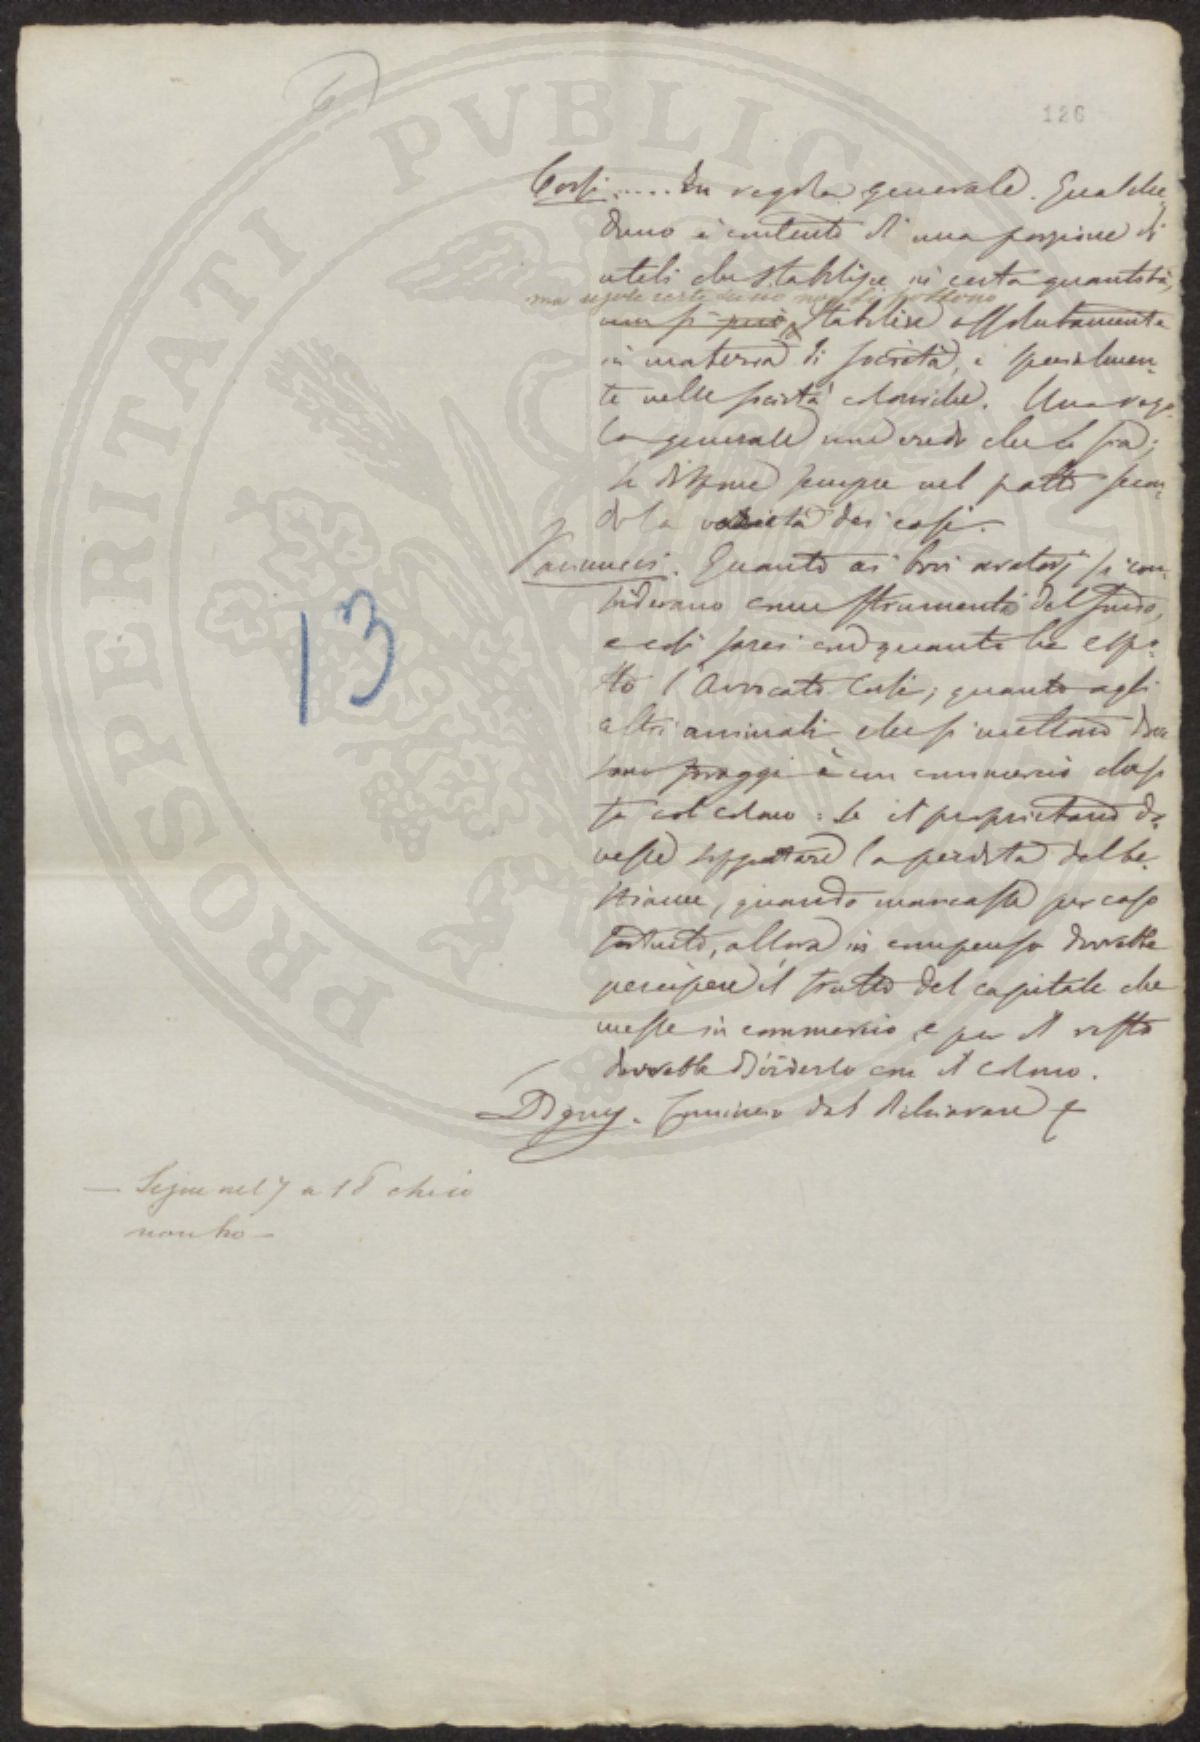 126
Corsi ..... In regola generale. Qualche-
duno è contento di una porzione di
utili che stabilisce in certa quantità,
ma regole certe non si possono
non si può stabilire assolutamente
in materia di società, e specialmen-
te nelle società coloniche. Una rego-
la generale non credo che ci sia;
si dispone sempre nel patto secon-
do la varietà dei casi.
Vannucci. Quanto ai bovi aratorj si con-
siderano come strumenti del fondo,
e così sarei con quanto ha espo-
sto l'Avvocato Corsi; quanto agli
altri animali che si mettono dove
sono foraggi è un commercio che si
fa col colono: se il proprietario do-
vesse sopportare la perdita del be-
stiame, quando mancasse per caso
fortuito, allora in compenso dovrebbe
percipere il frutto del capitale che
messe in commercio e per il resto
dovrebbe dividerlo con il colono.
Digny. Comincio dal dichiarare
13
— Segue nel 7 a 18 che io
non ho —
PROSPERITATI PVBLIC
G. MAGNANI